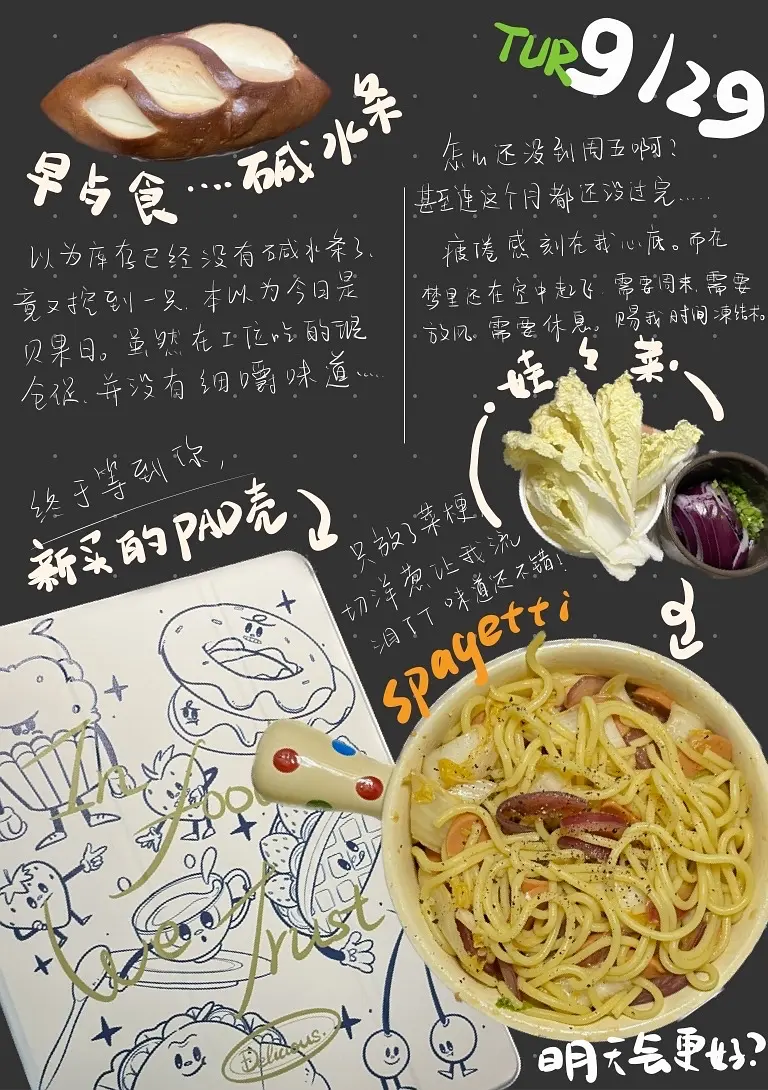 TUR 9/29
早占食....碱水条
以为库存已经没有碱水条了、
竟又挖到一只. 本以为今日是
贝果日。虽然在工位吃的很
仓促. 并没有细嚼味道.....
怎么还没到周五啊?
甚至连这个月都还没过完.....
疲倦感刻在我心底。而在
梦里还在空中起飞. 需要周末. 需要
放风. 需要休息。赐我时间冻结术。
娃々菜.
终于等到你,
新买的PAD壳
只放了菜梗.
切洋葱让我流
泪TT 味道还不错!
spagetti
In food
We Trust
Delicious.
明天会更好?